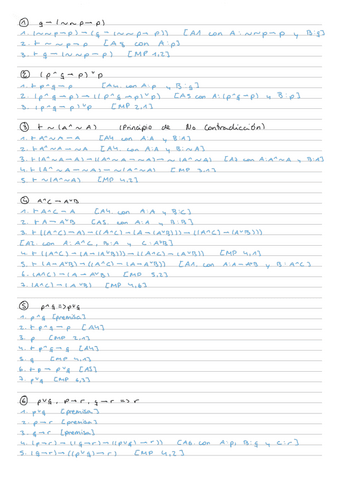 ① q → (∼∼p → p)
1. (∼∼p→p)→(q→(∼∼p→p)) [A1 con A:∼∼p→p y B:q]
2. ⊢ ∼∼p → p [A8 con A:p]
3. ⊢ q→(∼∼p→p) [MP 1,2]
② (p^q → p) ∨ p
1. ⊢ p^q → p [A4 con A:p y B:q]
2. (p^q → p)→((p^q→p)∨p) [A5 con A:(p^q→p) y B:p]
3. (p^q→p)∨p [MP 2,1]
③ ⊢ ∼(A^∼A) (Principio de No Contradicción)
1. ⊢ A^∼A → A [A4 con A:A y B:∼A]
2. ⊢ A^∼A → ∼A [A4 con A:A y B:∼A]
3. ⊢ (A^∼A→A)→((A^∼A→∼A)→∼(A^∼A)) [A7 con A:A^∼A y B:A]
4. ⊢ (A^∼A→∼A)→∼(A^∼A) [MP 3,1]
5. ⊢ ∼(A^∼A) [MP 4,2]
④ A^C → A∨B
1. ⊢ A^C → A [A4 con A:A y B:C]
2. ⊢ A → A∨B [A5 con A:A y B:B]
3. ⊢ ((A^C)→A)→((A^C)→(A→(A∨B)))→((A^C)→(A∨B)))
[A2 con A:A^C, B:A y C:A∨B]
4. ⊢ ((A^C)→(A→(A∨B)))→((A^C)→(A∨B)) [MP 3,1]
5. ⊢ (A→A∨B)→((A^C)→(A→A∨B)) [A1 con A:A→A∨B y B:A^C]
6. (A^C)→(A→A∨B) [MP 5,2]
7. (A^C)→(A∨B) [MP 4,6]
⑤ p^q => p∨q
1. p^q [premisa]
2. ⊢ p^q → p [A4]
3. p [MP 2,1]
4. ⊢ p^q → q [A4]
5. q [MP 4,1]
6. ⊢ p → p∨q [A5]
7. p∨q [MP 6,3]
⑥ p∨q, p→r, q→r => r
1. p∨q [premisa]
2. p→r [premisa]
3. q→r [premisa]
4. (p→r)→((q→r)→((p∨q)→r)) [A6 con A:p, B:q y C:r]
5. (q→r)→((p∨q)→r) [MP 4,2]